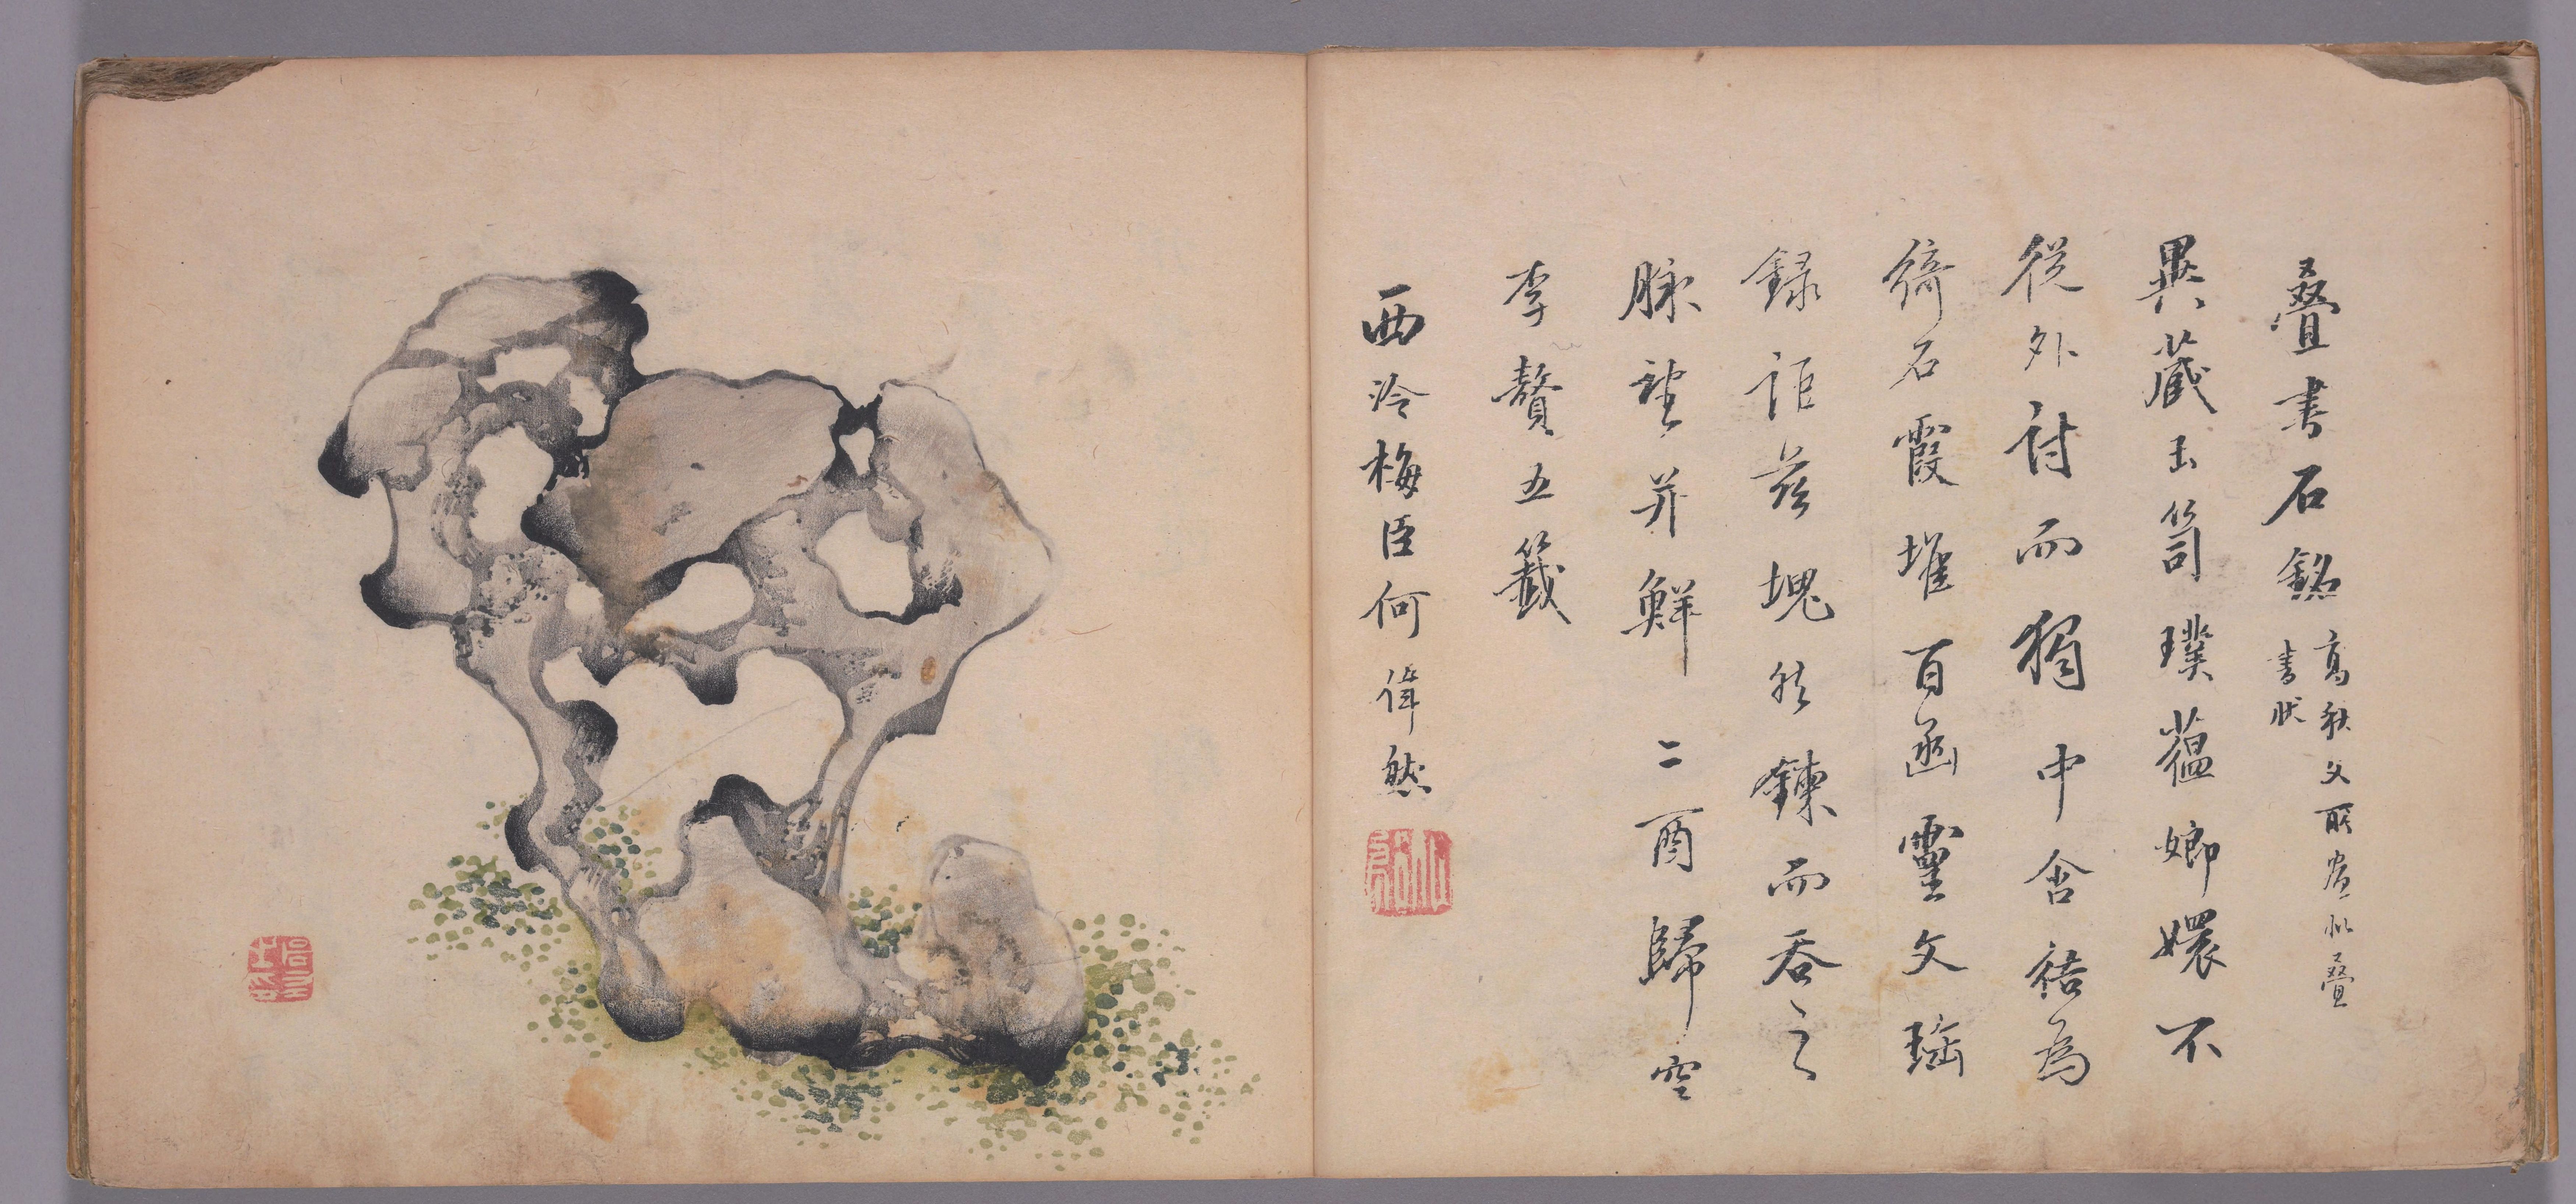 疊書石銘
高秋父所居似疊
書狀
異藏玉笥璞蘊嫏嬛不
從外討而獨中含結為
綺石霞堆百函靈文瑶
録詎兹塊然鍊而吞之
脉望并鮮二酉歸空
李贅五籤
西泠梅臣何偉然